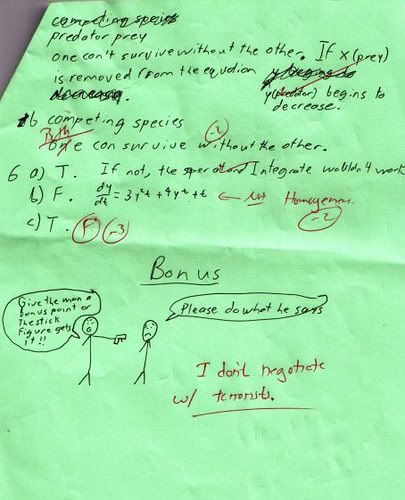 competing species
predator prey
one can't survive without the other. If x (prey)
is removed from the equation y begins to
decreasing. y(predator) begins to
decrease.
b competing species -2
Both
one can survive without the other.
6 a) T. If not, the Integrate wouldn't work
b) F. dy/dt = 3y²t + 4y²t + t ← Not Homogeneous. -2
c) T. F -3
Bonus
Give the man a
bonus point or
The stick
Figure gets
it!!
Please do what he says
I don't negotiate
w/ terrorists.